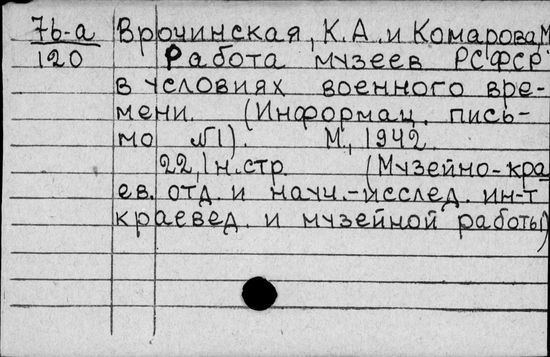 7б-а Врочинская, К.А. и Комарова, М
120 Работа музеев РСФСР
в условиях военного вре-
мени. (Информац. пись-
мо №1). М., 1942.
22,1н.стр. (Музейно-кра
ев. отд. и науч.-исслед. ин-т
краевед. и музейной работы)